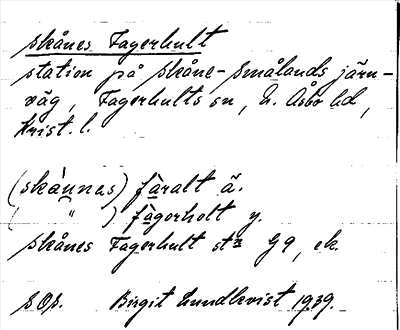 Skånes Fagerhult
station på Skåne-Smålands järn-
väg, Fagerhults sn, N. Åsbo hd,
Krist. l.
(skànnas) fàralt ä.
( " ) fàgorholt y.
Skånes Fagerhult stn G9, ek.
SOS. Birgit Lundkvist 1939.